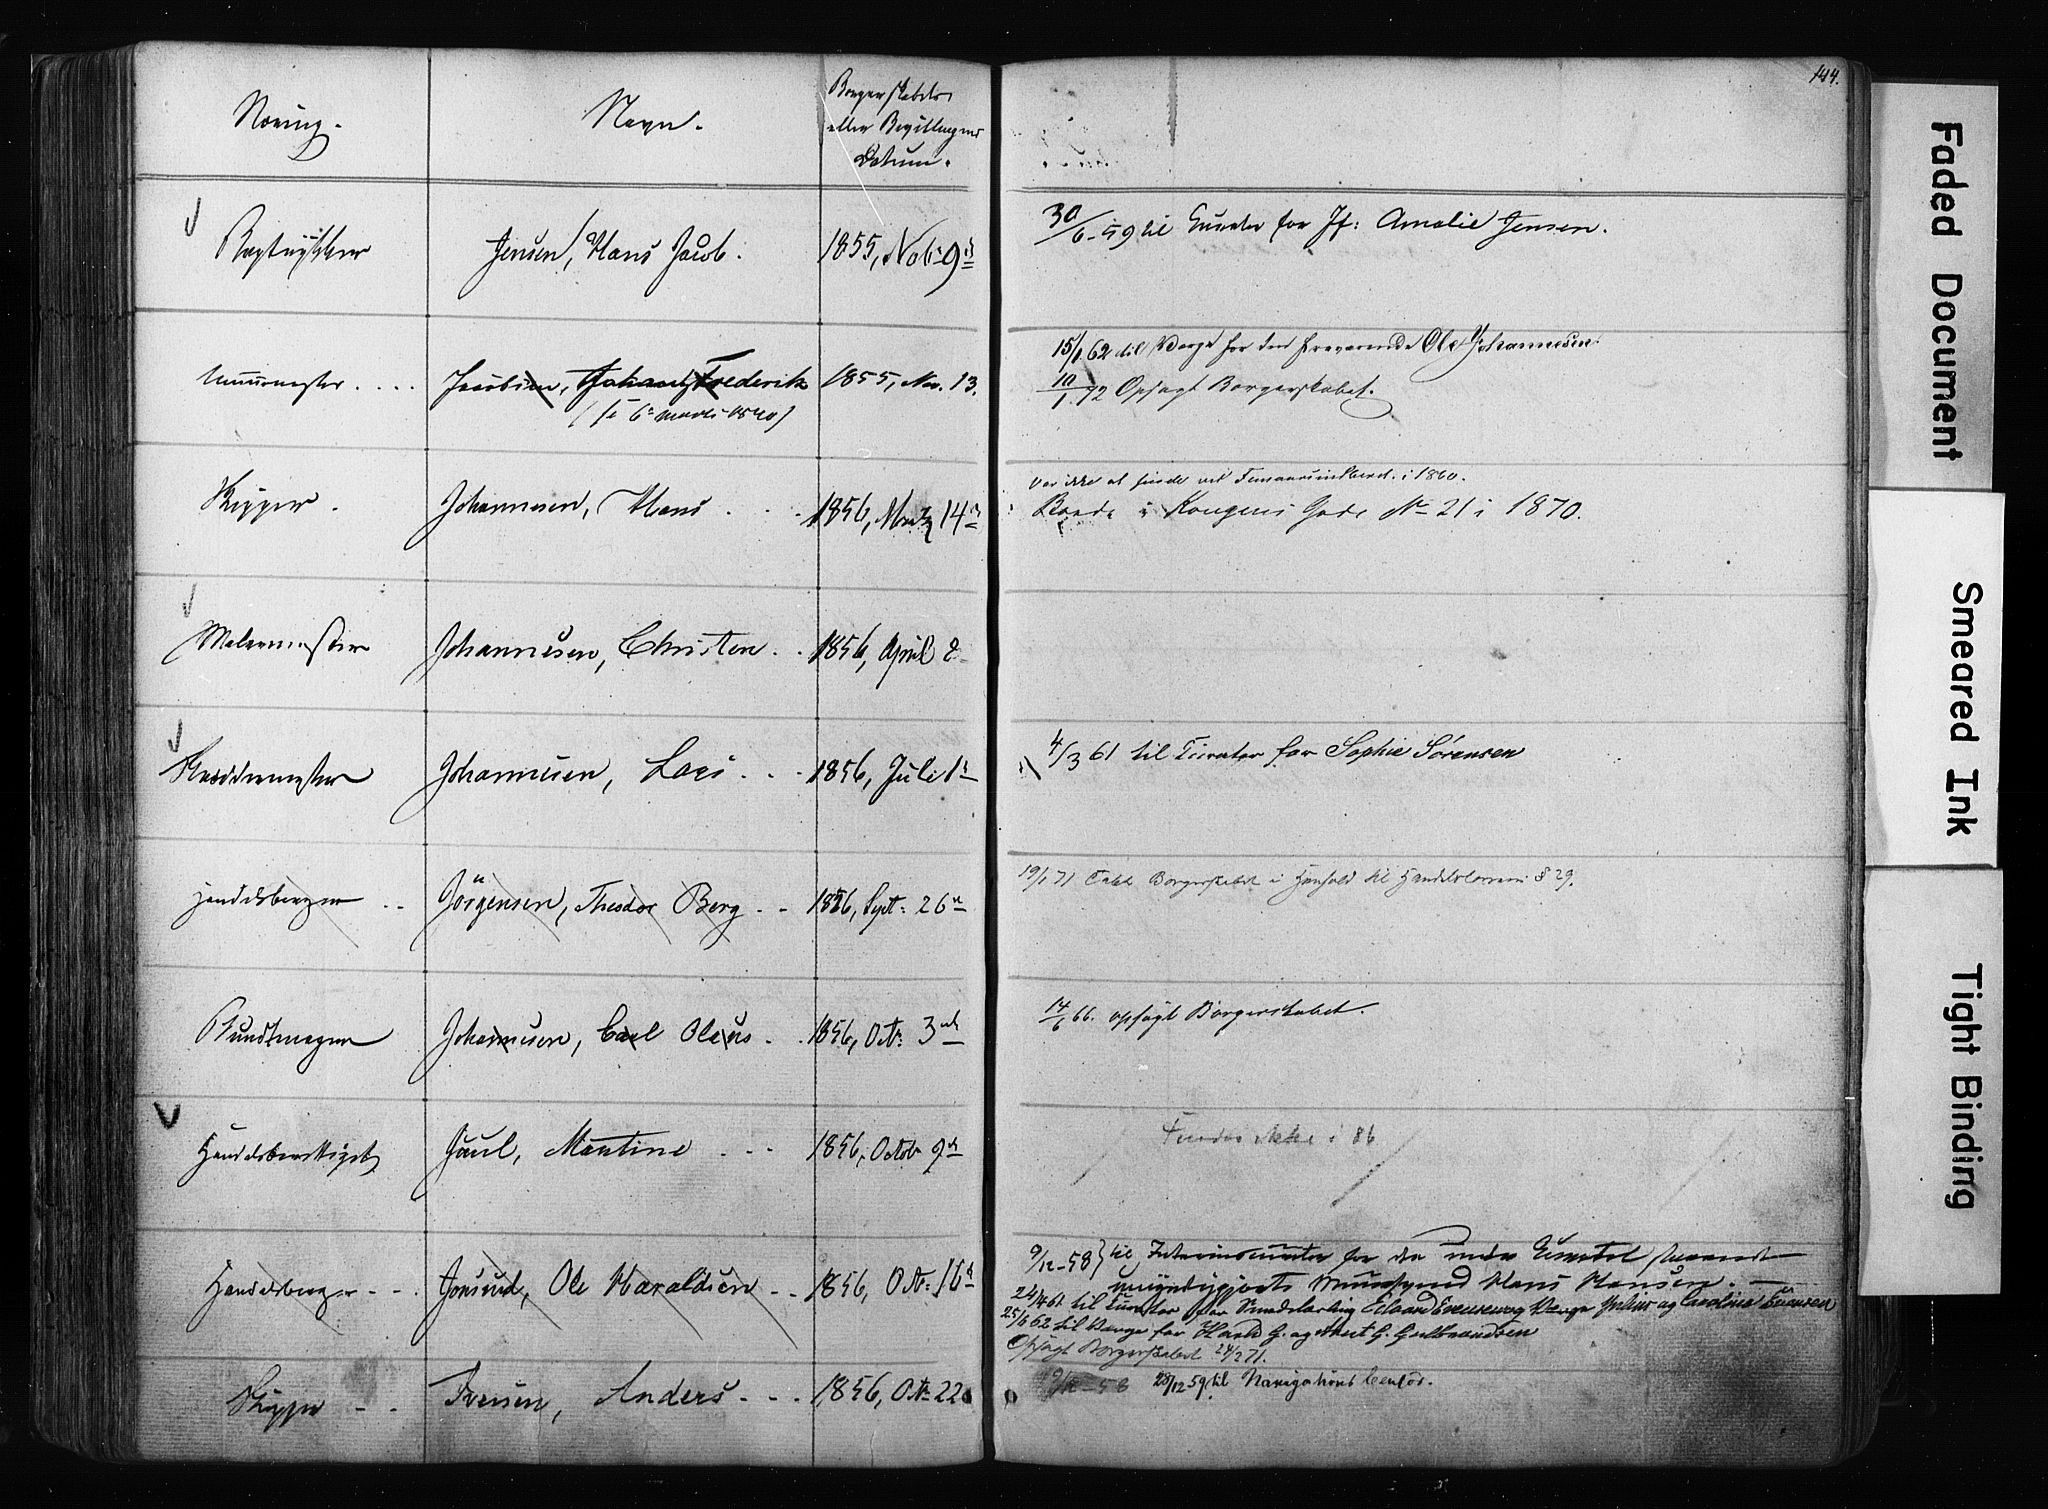 144.
Næring.
Navn.
Borgerskabets
eller Bevillingens
Datum.
Bogtrykker
Jensen, Hans Jacob.
1855, Nobr 9de
30/6-59 til Curator for Jf: Amalie Jensen.
Muurmester....
Jacobsen, Johan Frederik
1855, Nov. 13.
(se 6te Marts 1840)
15/1 62 til Værge for den fraværende Ole Johannesen
10/1.72 Opsagt Borgerskabet.
Skipper.
Johannesen, Hans . . .
1856, Marts 14de
var ikke at finde ved i 1860.
Boede i Kongens Gade No 21 i 1870.
Malermester
Johannesen, Christen. .
1856, April 8
Skræddermester
Johannesen, Lars. . .
1856, Juli 1ste
4/3 61 til Curator for Sophie Sørensen
Handelsborger . .
Jörgensen, Theodor Berg . .
1856, Sept: 26de
19/1 71 Tabt Borgerskabet i Henhold til Handelsloven § 29.
Bundtmager
Johannesen, Carl Olaus. .
1856, Octr: 3de
14/6 66. opsagt Borgerskabet.
Handelsberettiget
Juul, Martine . . .
1856, Octobr 9de
Findes ikke i 86
Handelsborger . . .
Jonsrud, Ole Haraldsen . .
1856, Octr: 16de
9/12-58} til Interimscurator for den under Curatel
Hans Hansen.
24/4 61 til Curator for Edvard Evensen og Værge Julius og Caroline Evensen
25/6 62 til Værge for Harald G. og G. Gulbrandsen
Opsagt Borgerskabet 24/2 71.
Skipper . .
Iversen, Anders . . .
1856, Octr 22de
9/12-58 28/12 59. til Navigations Censor.
Faded Document
Smeared Ink
Tight Binding